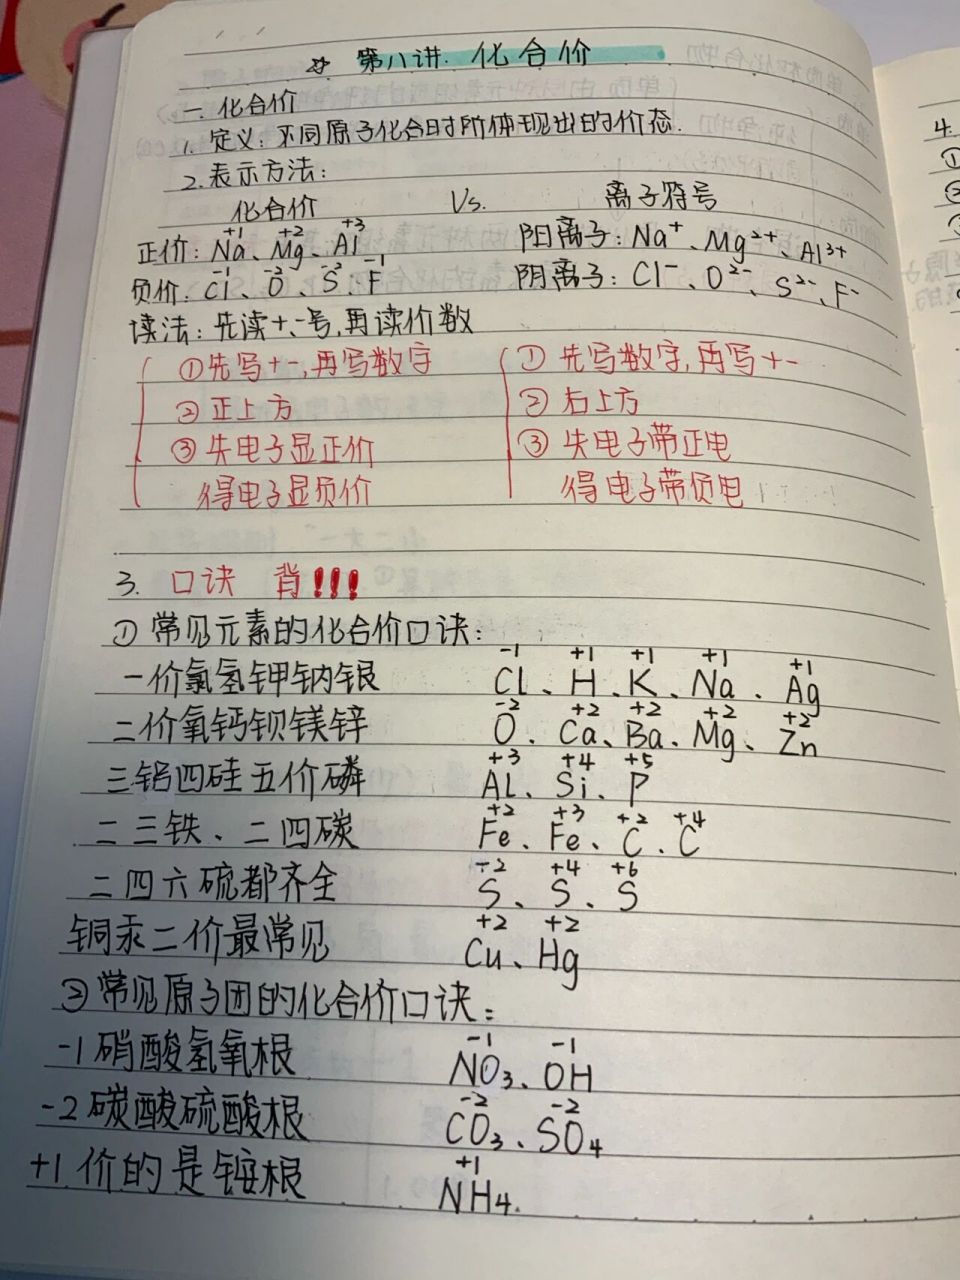 ☆ 第八讲. 化合价
一. 化合价
1. 定义: 不同原子化合时所体现出的价态.
2. 表示方法:
化合价 Vs. 离子符号
正价: Na⁺¹、Mg⁺²、Al⁺³ 阳离子: Na⁺、Mg²⁺、Al³⁺
负价: Cl⁻¹、O⁻²、S⁻²、F⁻¹ 阴离子: Cl⁻、O²⁻、S²⁻、F⁻
读法: 先读+、-号,再读价数
①先写+-,再写数字 ① 先写数字,再写+-
②正上方 ② 右上方
③失电子显正价 ③ 失电子带正电
得电子显负价 得电子带负电
3. 口诀 背!!!
① 常见元素的化合价口诀:
一价氯氢钾钠银 Cl⁻¹、H⁺¹、K⁺¹、Na⁺¹、Ag⁺¹
二价氧钙钡镁锌 O⁻²、Ca⁺²、Ba⁺²、Mg⁺²、Zn⁺²
三铝四硅五价磷 AL⁺³、Si⁺⁴、P⁺⁵
二三铁、二四碳 Fe⁺²、Fe⁺³、C⁺²、C⁺⁴
二四六硫都齐全 S⁻²、S⁺⁴、S⁺⁶
铜汞二价最常见 Cu⁺²、Hg⁺²
②常见原子团的化合价口诀:
-1硝酸氢氧根 NO₃⁻¹、OH⁻¹
-2碳酸硫酸根 CO₃⁻²、SO₄⁻²
+1价的是铵根 NH₄⁺¹.